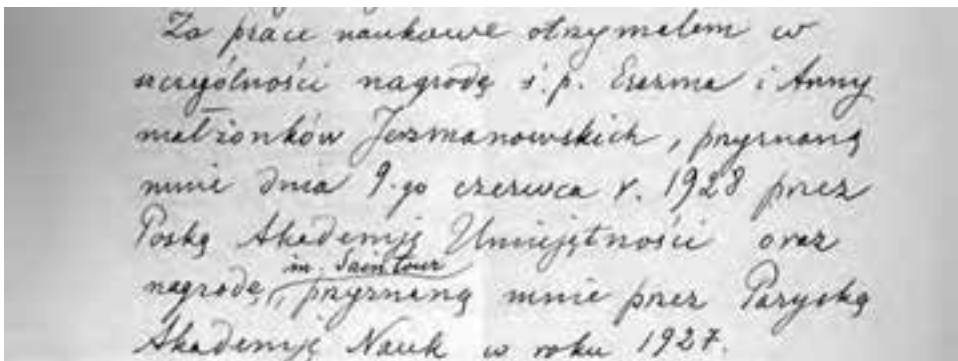 Za prace naukowe otrzymałem w
szczególności nagrodę ś.p. Erazma i Anny
małżonków Jerzmanowskich, przyznaną
mnie dnia 9-go czerwca r. 1928 przez
Polską Akademję Umiejętności oraz
im. Saintour
nagrodę, przyznaną mnie przez Paryską
Akademję Nauk w roku 1927.